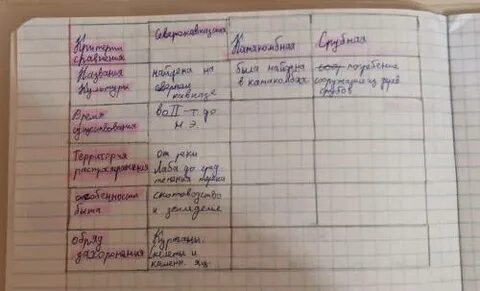 Критерии сравнения
Северокавказская
Катакомбная
Срубная
Названия культуры
найдена на северном кавказе
была найдена в катакомбах
погребение сооружали из
срубов
Время существования
во II-т. до н.э.
Территория распространения
от реки Лаба до сред течения терека
особенности быта
скотоводство и земледелие
Обряд захоронения
Курганы,
скелеты и каменн. ящ.